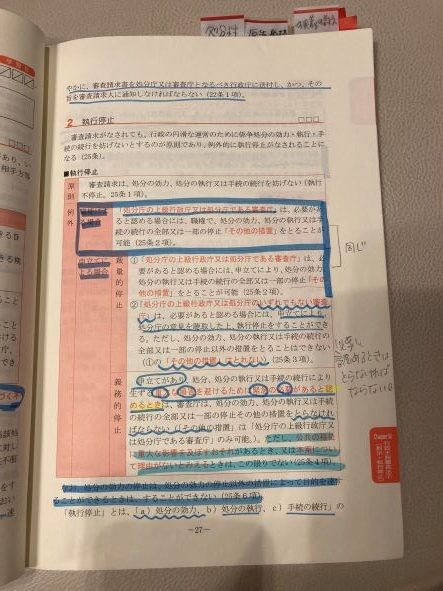 やかに、審査請求書を処分庁又は審査庁となるべき行政庁に送付し、かつ、その
旨を審査請求人に通知しなければならない（22条1項）。
2 執行停止
審査請求がなされても、行政の円滑な運営のために係争処分の効力・執行・手
続の続行を妨げないとするのが原則であり、例外的に執行停止がなされることに
なる（25条）。
■執行停止
原則
審査請求は、処分の効力、処分の執行又は手続の続行を妨げない（執行
不停止、25条1項）。
例外
「処分庁の上級行政庁又は処分庁である審査庁」は、必要があ
ると認める場合には、職権で、処分の効力、処分の執行又は手
続の続行の全部又は一部の停止「その他の措置」をとることが
可能（25条2項）。
裁量的停止
①「処分庁の上級行政庁又は処分庁である審査庁」は、必
要があると認める場合には、申立てにより、処分の効力、
処分の執行又は手続の続行の全部又は一部の停止「その
他の措置」をとることが可能（25条2項）
②「処分庁の上級行政庁又は処分庁のいずれでもない審査
庁」は、必要があると認める場合には、申立てにより、
処分庁の意見を聴取した上、執行停止をすることができ
る。ただし、処分の効力、処分の執行又は手続の続行の
全部又は一部の停止以外の措置をとることはできない
（①の「その他の措置」はとれない）（25条3項）。
同じ
義務的停止
申立てがあり、処分、処分の執行又は手続の続行により生
ずる重大な損害を避けるために緊急の必要があると認
めるときは、審査庁は、処分の効力、処分の執行又は手続
の続行の全部又は一部の停止その他の措置をとらなければ
ならない（「その他の措置」は「処分庁の上級行政庁又
は処分庁である審査庁」のみ可能。）。ただし、公共の福祉
に重大な影響を及ぼすおそれがあるとき、又は本案につい
て理由がないとみえるときは、この限りでない（25条4項）。
処分の効力の停止は、処分の効力の停止以外の措置によって目的を達
することができるときは、することができない（25条6項）
「執行停止」とは、「a）処分の効力、b）処分の執行、c）手続の続行」の
—27—